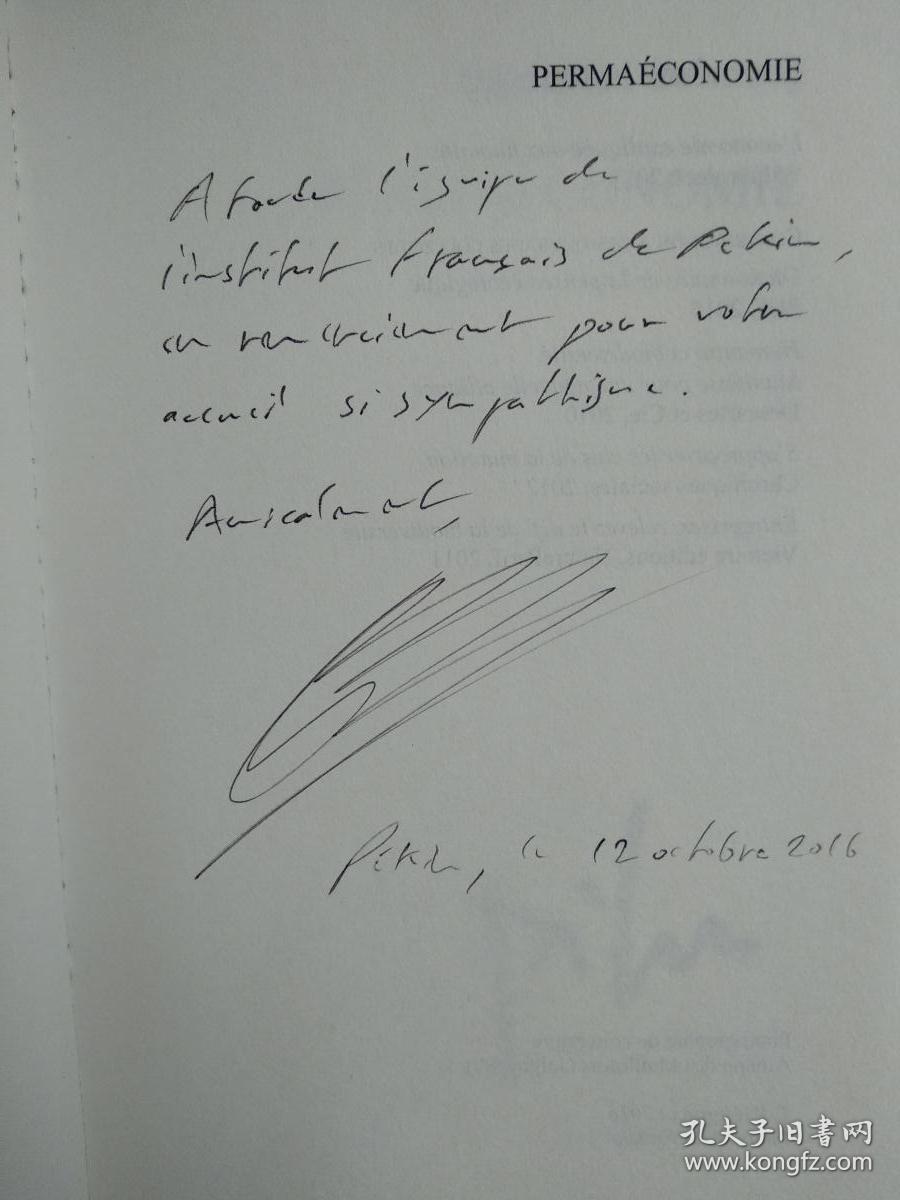 PERMAÉCONOMIE
A toute l'équipe de
l'institut français de Pékin,
en remerciement pour votre
accueil si sympathique.
Amicalement
Pékin, le 12 octobre 2016
孔夫子旧书网
www.kongfz.com